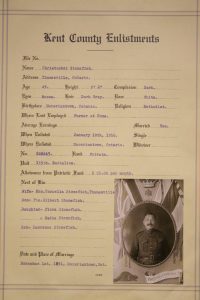 Kent County Enlistments
File No.
Name. Christopher Stonefish.
Address. Thamesville, Ontario.
Age 45. Height 5' 8" Complexion Dark.
Eyes Brown. Hair Dark Gray. Race White.
Birthplace Moraviantown, Ontario. Religion Methodist.
Where Last Employed Farmer at Home.
Average Earnings Married Yes.
When Enlisted January 19th, 1916. Single
Where Enlisted Moraviantown, Ontario. Widower
No. Rank. Private.
Unit. Battalion.
Allowance from Patriotic Fund $ 15.00 per month.
Next of Kin
Wife- Mrs. Cornelia Stonefish, Thamesville
Sons Pte. Gilbert Stonefish.
Daughter- Flora Stonefish.
Stonefish.
Son- Stonefish.
Date and Place of Marriage
Moraviantown, Ont.